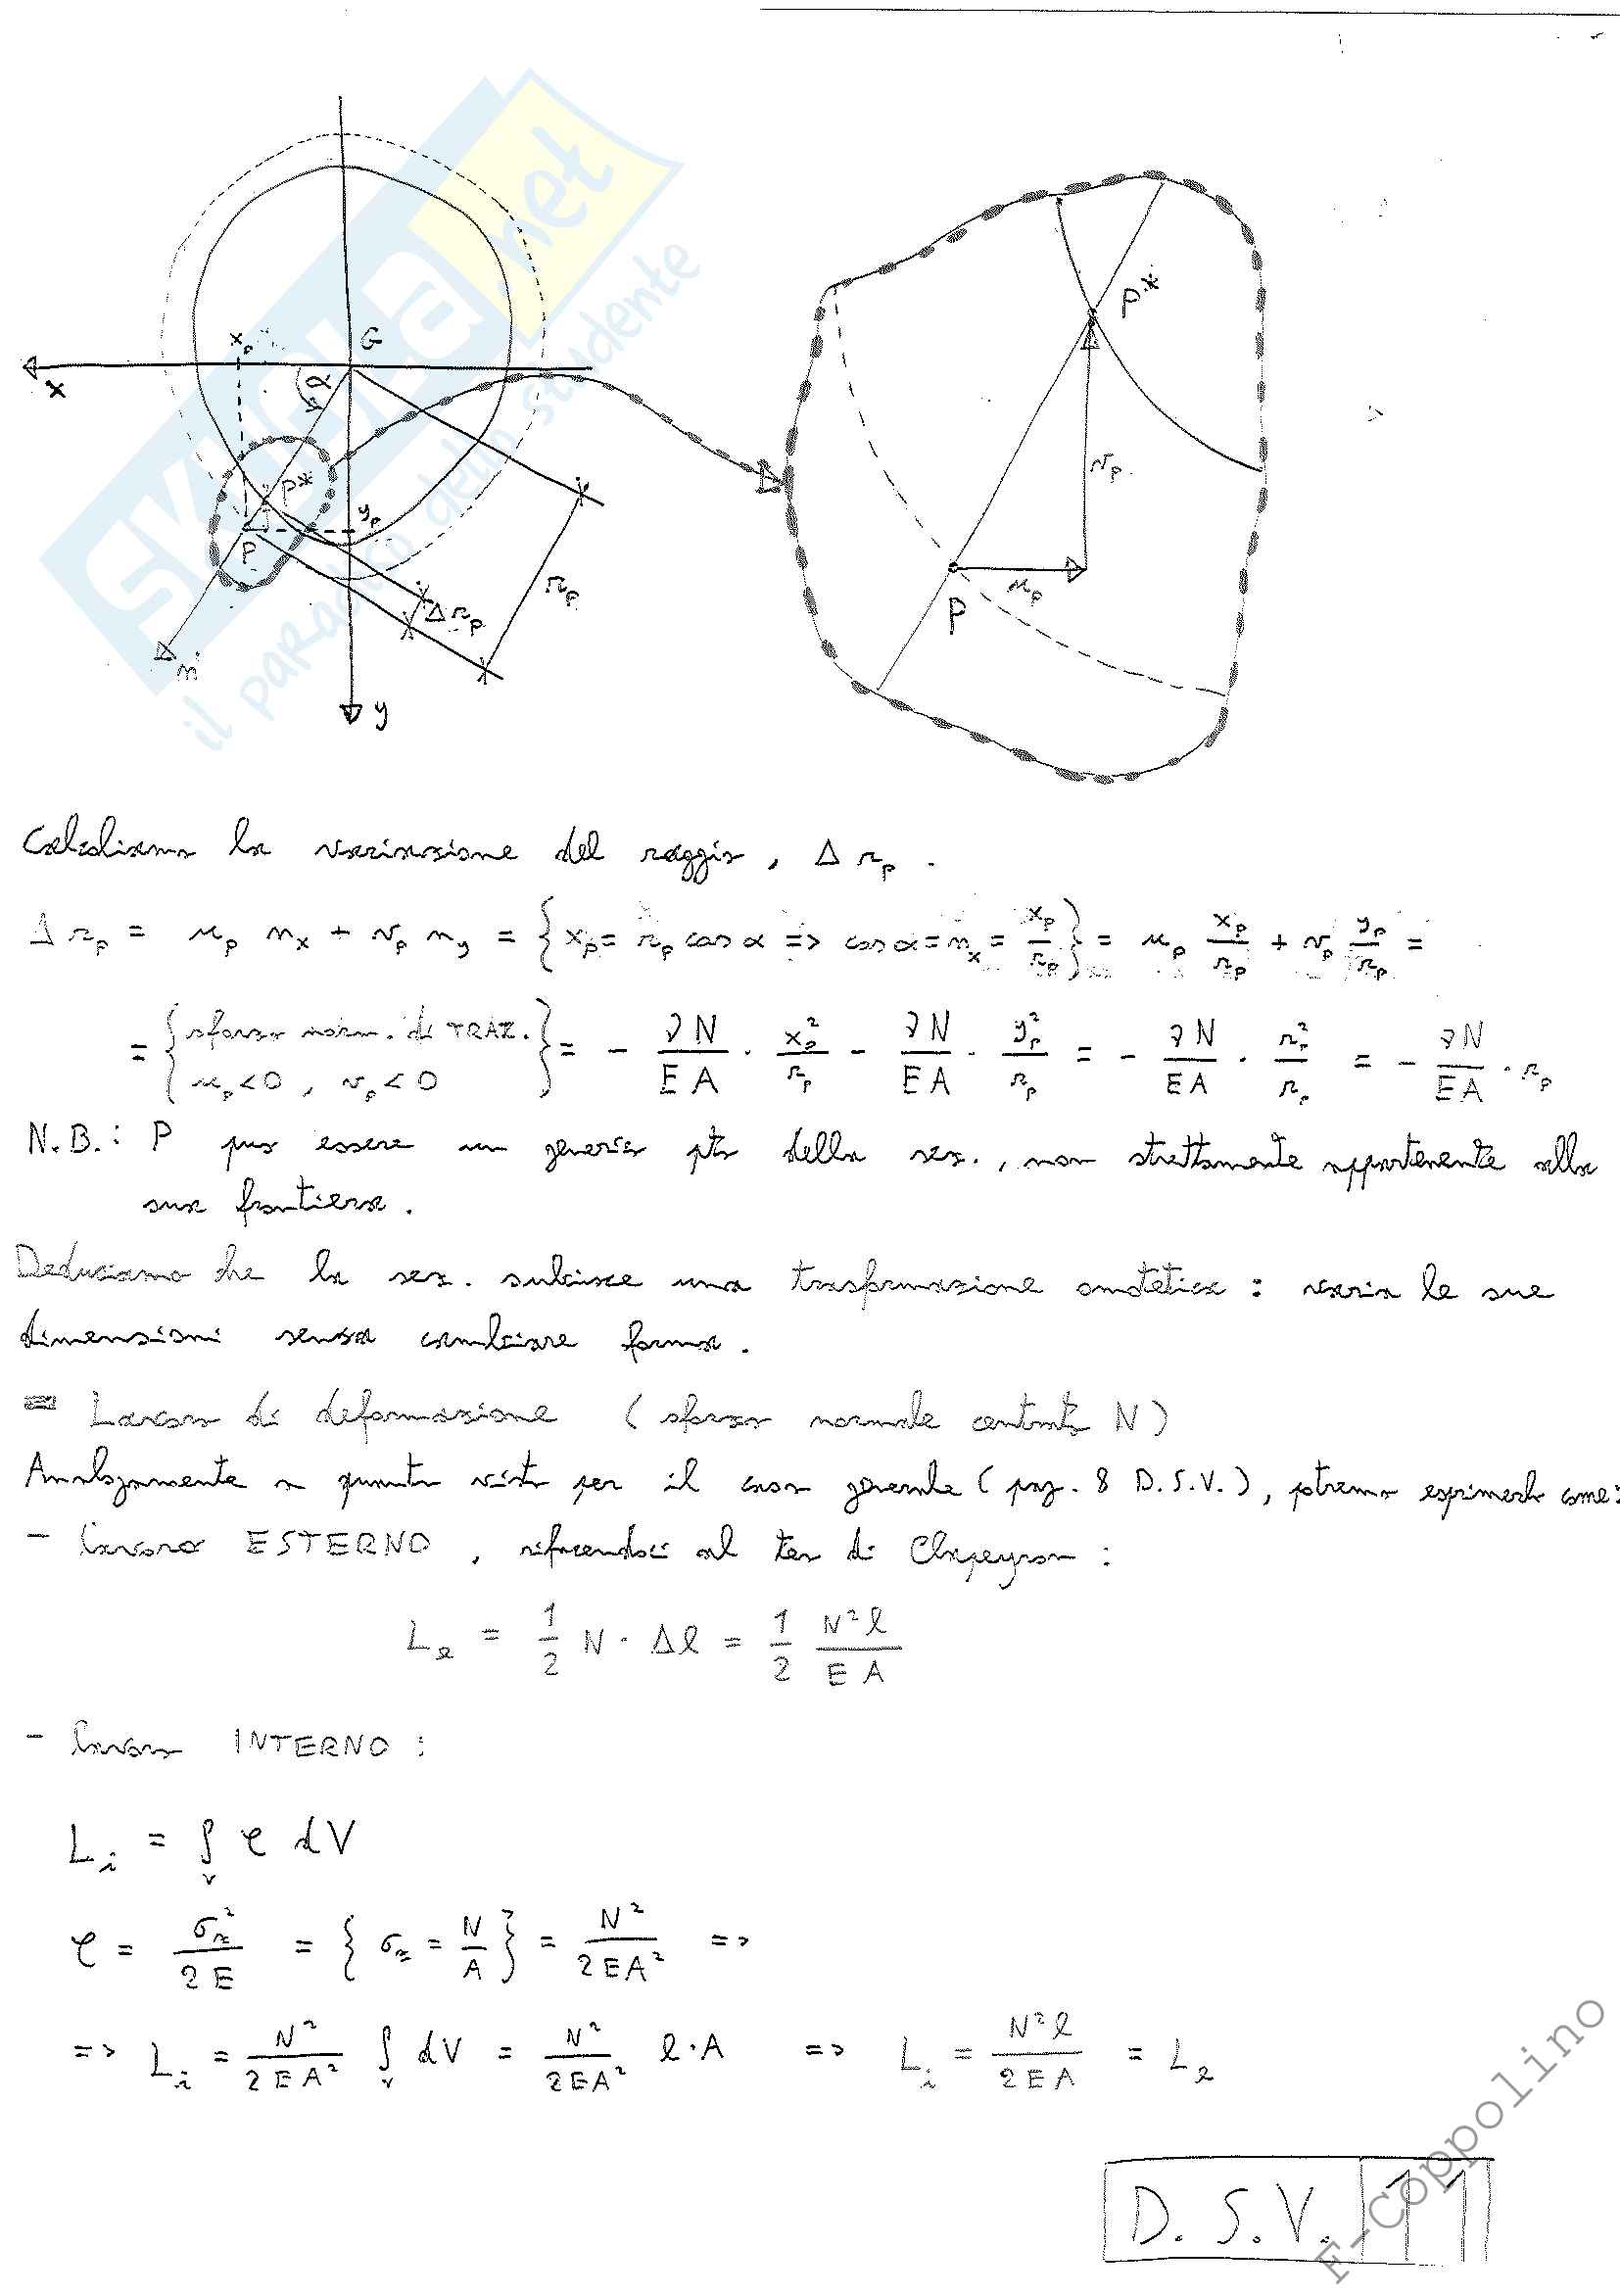 SKUOLA.net
il paradiso dello studente
x
xₚ
G
α
P*
yₚ
P
rₚ
Δrₚ
n
y
P*
vₚ
uₚ
P
Calcoliamo la variazione del raggio, Δrₚ.
Δrₚ = uₚ nₓ + vₚ n_y = {xₚ = rₚ cos α => cos α = nₓ = xₚ/rₚ} = uₚ xₚ/rₚ + vₚ yₚ/rₚ =
= {sforzo norm. di TRAZ. uₚ<0, vₚ<0} = - νN/EA · xₚ²/rₚ - νN/EA · yₚ²/rₚ = - νN/EA · rₚ²/rₚ = - νN/EA · rₚ
N.B.: P può essere un generico pto della sez., non strettamente appartenente alla
sua frontiera.
Deduciamo che la sez. subisce una trasformazione omotetica: varia le sue
dimensioni senza cambiare forma.
= Lavoro di deformazione (sforzo normale centrato N)
Analogamente a quanto visto per il caso generale (pag. 8 D.S.V.), potremo esprimerlo come:
- lavoro ESTERNO, rifacendoci al teo di Clapeyron:
Lₑ = 1/2 N · Δl = 1/2 N²l/EA
- lavoro INTERNO:
Lᵢ = ∫ᵥ φ dV
φ = σ_z²/2E = {σ_z = N/A} = N²/2EA² =>
=> Lᵢ = N²/2EA² ∫ᵥ dV = N²/2EA² l·A => Lᵢ = N²l/2EA = Lₑ
D.S.V. 11
F-Coppolino